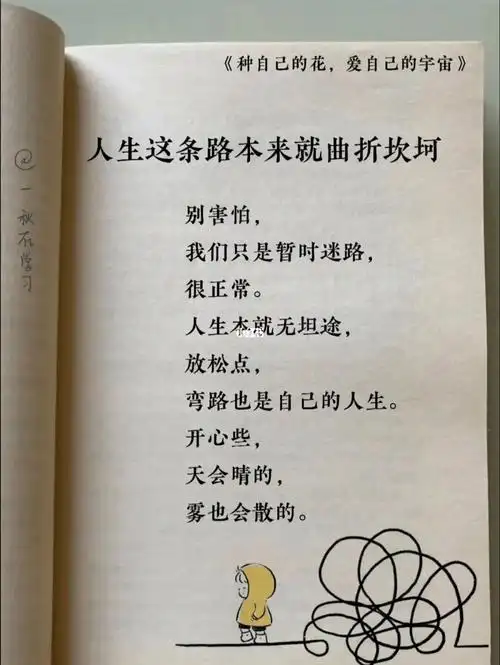 《种自己的花，爱自己的宇宙》
人生这条路本来就曲折坎坷
别害怕，
我们只是暂时迷路，
很正常。
人生本就无坦途，
放松点，
弯路也是自己的人生。
开心些，
天会晴的，
雾也会散的。
@一秋不学习